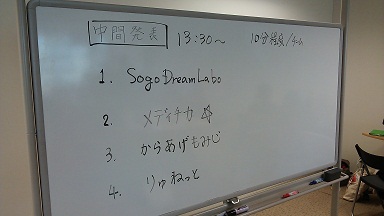 中間発表 13:30～ 10分程度/チーム
1. SogoDreamLabo
2. メディチカ ☆
3. からあげもみじ
4. りゅねっと